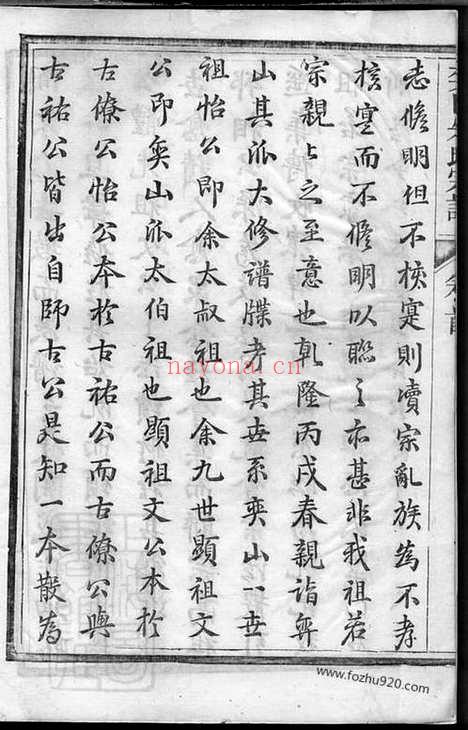 志脩明但不核寔則瀆宗亂族為不孝
核寔而不脩明以聯之亦甚非我祖若
宗親上之至意也乾隆丙戌春親詣弈
山其派大修譜牒考其世系奕山一世
祖怡公即余太叔祖也余九世顯祖文
公即奕山派太伯祖也顯祖文公本於
古僚公怡公本於古祐公而古僚公與
古祐公皆出自師古公是知一本散為
nayona.cn
www.fozhu920.com